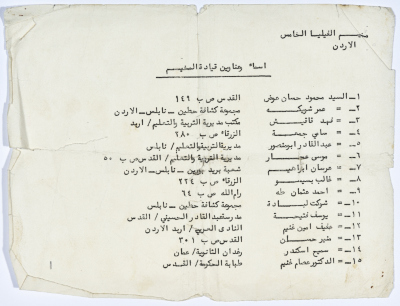 مخيم الفيليا الخامس
الاردن
اسماء وعناوين قيادة المخيم
١ــ السيد محمود حسان عوض القدس ص ب ١٤٩
٢ــ = عمر شويكه مجموعة كشافة حطين ــ نابلس ــ الاردن
٣ــ = فهد قاقيش مكتب مديرية التربية والتعليم / اربد
٤ــ = سامي جمعة الزرقاء ص ب ٢٨٠
٥ــ = عبد القادر ابو منصور مديرية التربية والتعليم / نابلس
٦ــ = موسى حجار مديرية التربية والتعليم / القدس ص ب ٥٠
٧ــ = عرسان ابراهيم شعبة بريد بورين ــ نابلس ــ الاردن
٨ــ = غالب بسيسو الزرقاء ص ب ٢٢٤
٩ــ = احمد عثمان طه رام الله ص ب ٦٤
١٠ــ = شوكت لبادة مجموعة كشافة حطين ــ نابلس
١١ــ = يوسف قنيحة مدرسة عبد القادر الحسيني / القدس
١٢ــ = عفيف امين غنيم النادى العربي / اربد الاردن
١٣ــ = منير حسان القدس ص ب ٣٠١
١٤ــ = سميح اسكندر رغدان الثانوية / عمان
١٥ــ = الدكتور عصام غنيم طبابة الحكومة / القدس